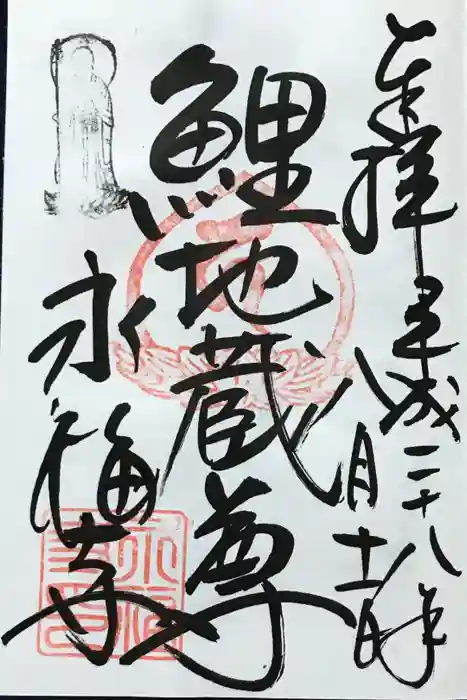 奉拝 平成二十八年
八月十 日
鯉地蔵尊
永福寺
永福寺印